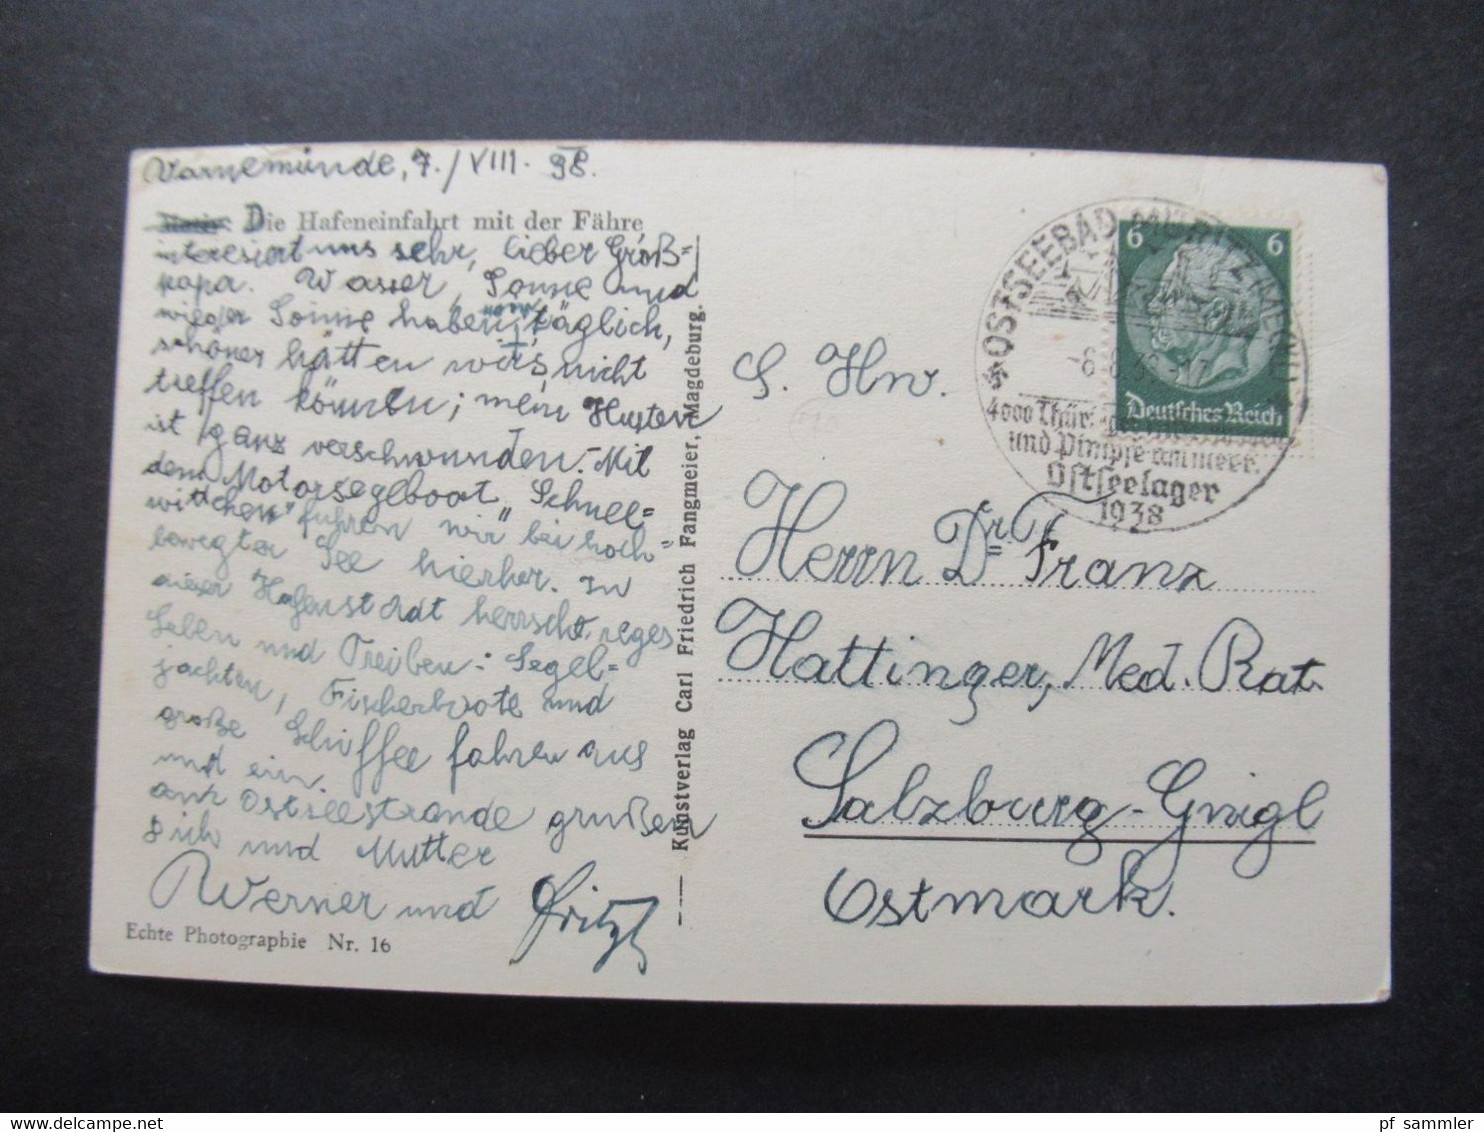 Warnemünde, 7./VIII. 38.
Die Hafeneinfahrt mit der Fähre
interesiert uns sehr, lieber Groß-
papa. Wasser, Sonne und
wieder Sonne haben wir täglich,
schöner hätten wir's nicht
treffen können; mein Husten
ist ganz verschwunden. - Mit
dem Motorsegelboot „Schnee-
wittchen" fuhren wir bei hoch-
bewegter See hierher. In
dieser Hafenstadt herrscht reges
Leben und Treiben: Segel-
jachten, Fischerboote und
große Schiffe fahren aus
und ein.
am Ostseestrande grüßen
Dich und Mutter
Werner und Fritzl
Echte Photographie Nr. 16
Kunstverlag Carl Friedrich Fangmeier, Magdeburg.
S. Hw.
Herrn Dr. Franz
Hattinger, Med. Rat
Salzburg-Gnigl
Ostmark.
6 6
Deutsches Reich
OSTSEEBAD MÜRITZ
4000 Thür.
und Pimpfe am Meer.
Ostseelager
1938
pf sammler
delcampe.net